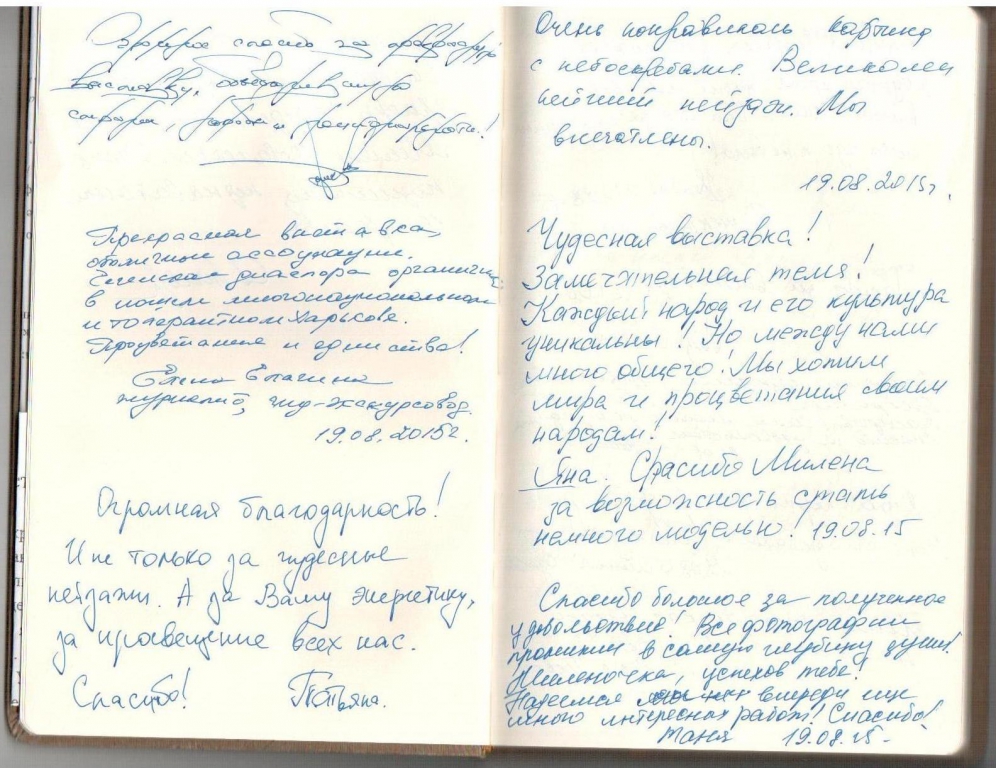 Огромное спасибо за прекрасную
выставку,
Прекрасная выставка,
отличные ассоциации.
диаспора органична
в нашем многонациональном
и толерантном Харькове.
Процветания и единства!
Елена
журналист, гид-экскурсовод.
19.08.2015г.
Огромная благодарность!
И не только за чудесные
пейзажи. А за Вашу энергетику,
за просвещение всех нас.
Спасибо! Татьяна.
Очень понравилась картина
с небоскребами. Великолеп
нейший пейзаж. Мы
впечатлены.
19.08.2015г.
Чудесная выставка!
Замечательная тема!
Каждый народ и его культура
уникальны! Но между нами
много общего! Мы хотим
мира и процветания своим
народам!
Яна. Спасибо Милена
за возможность стать
немного моделью! 19.08.15
Спасибо большое за полученное
удовольствие! Все фотографии
проникли в самую глубину души!
Миленочка, успехов тебе!
Надеемся впереди еще
много интересных работ! Спасибо!
Таня 19.08.15.